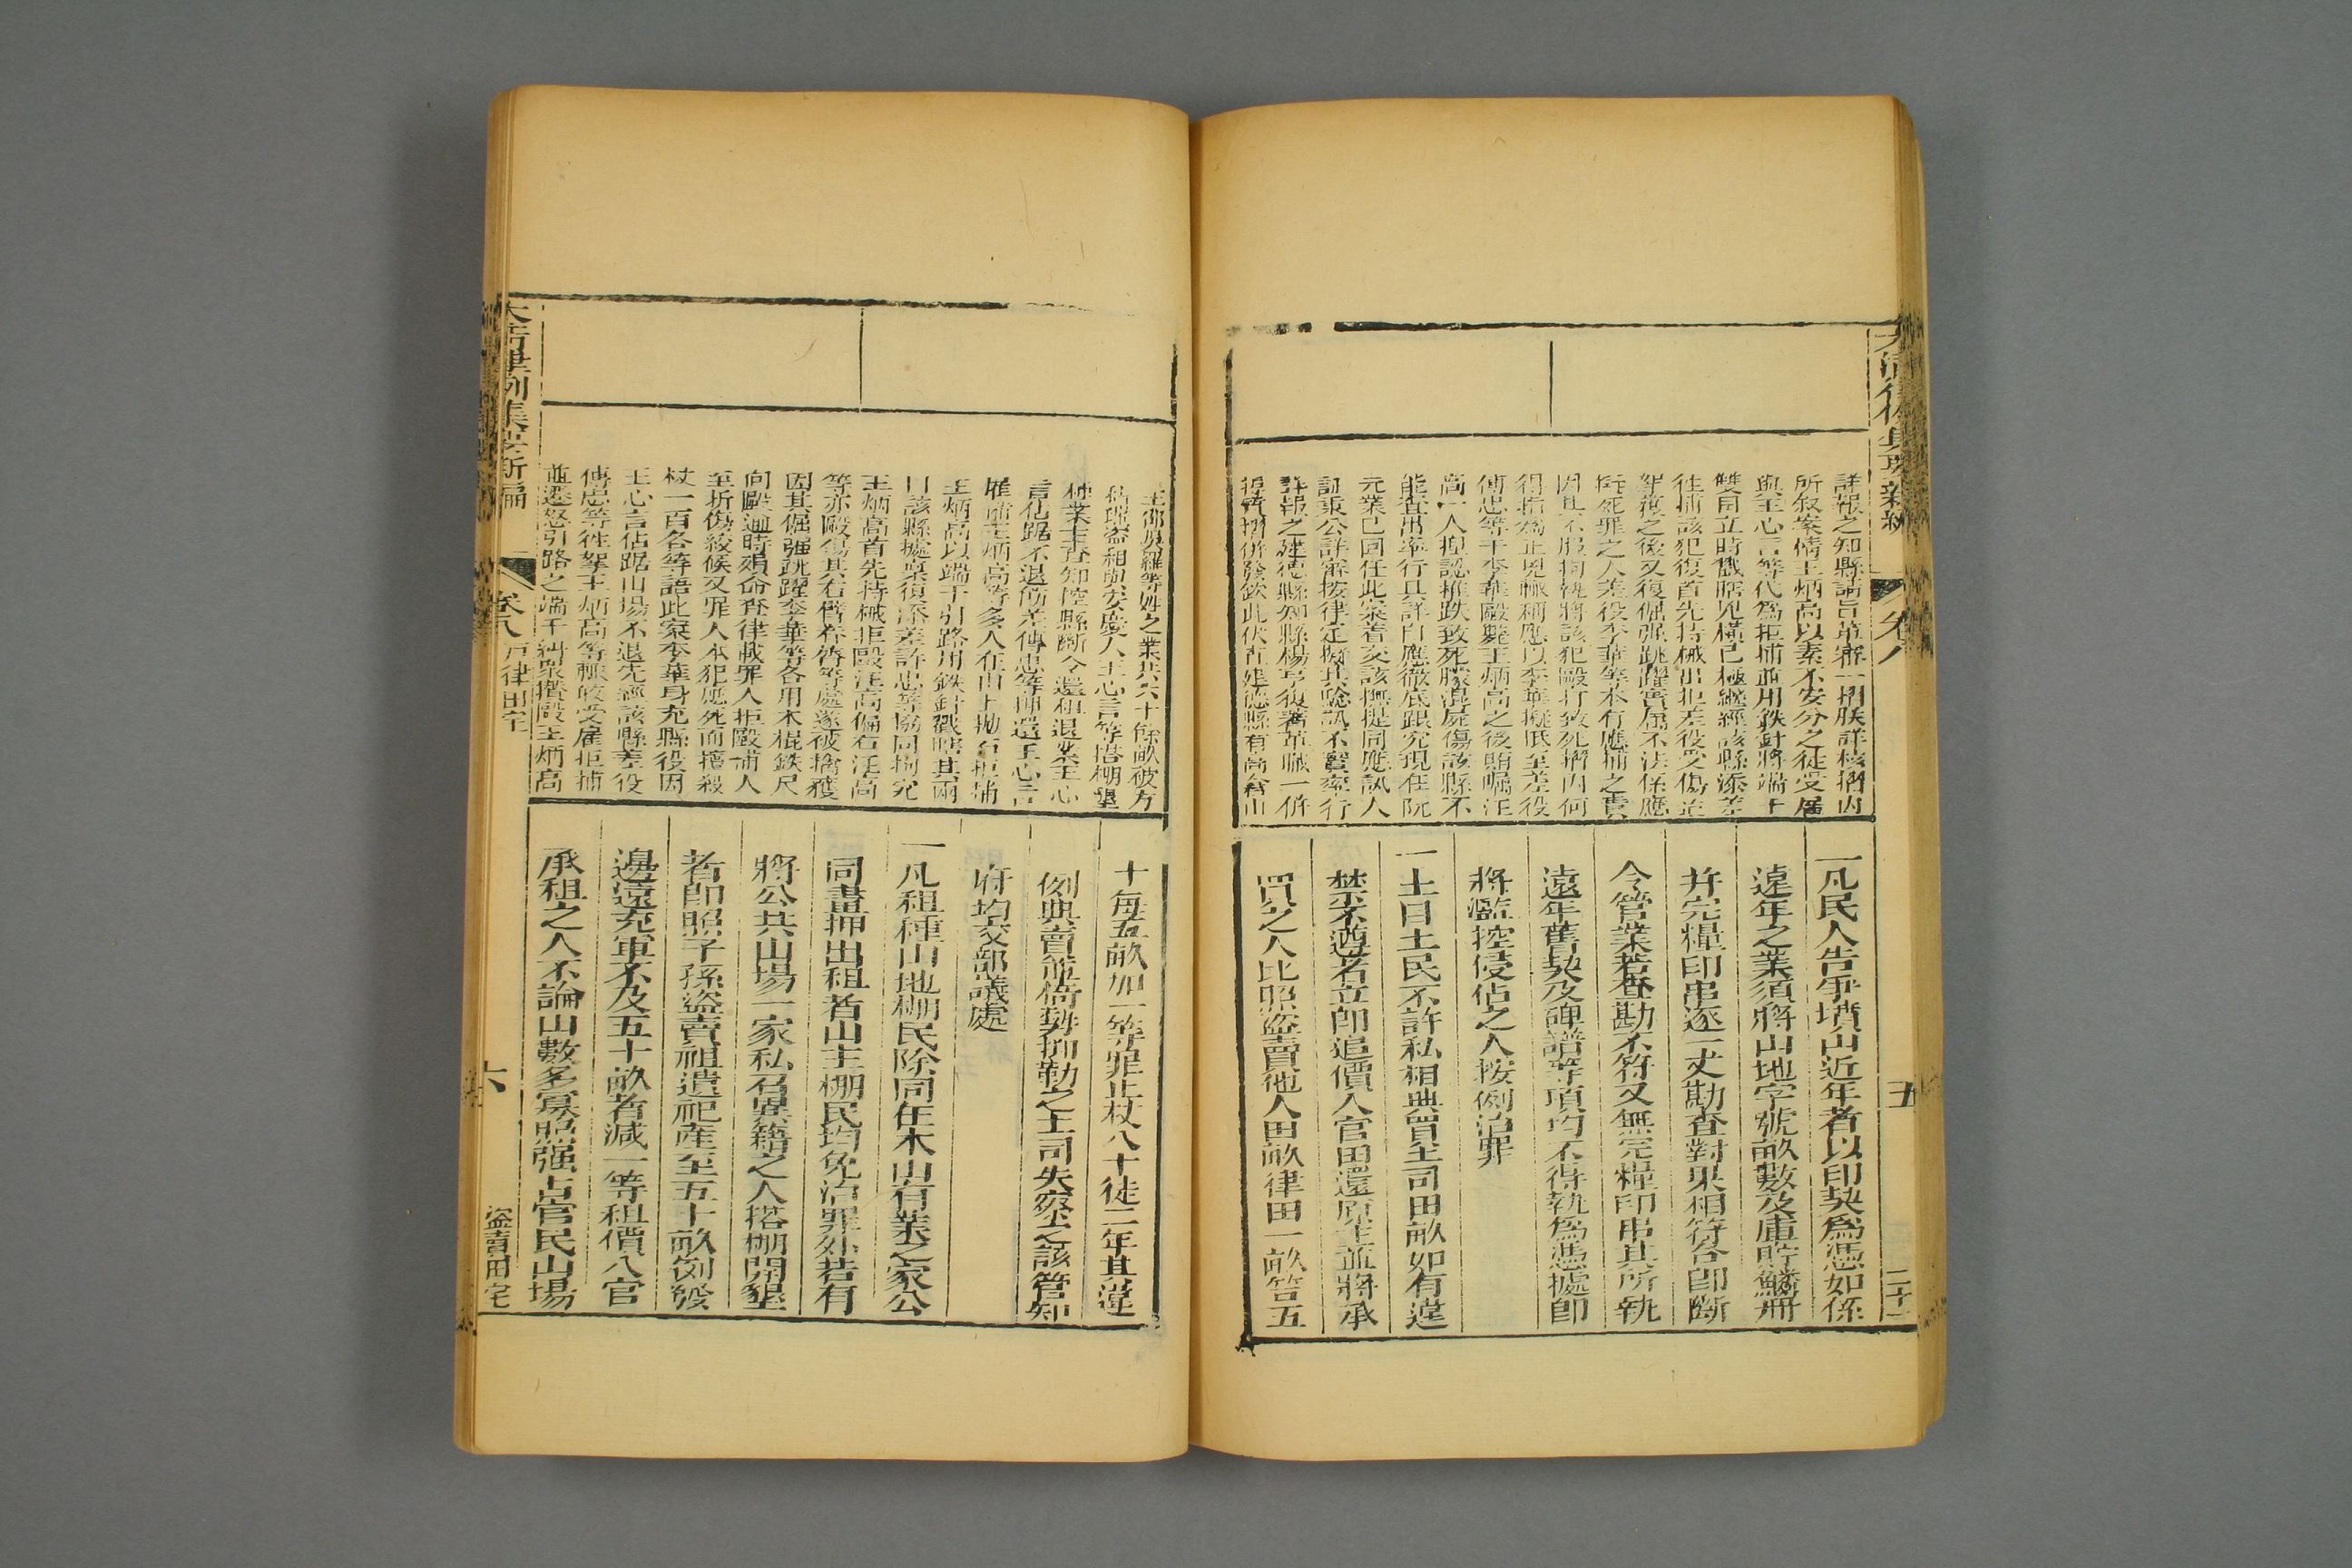 卷八
五
詳報之知縣請旨革審一摺朕詳核摺內
所叙案情王炳高以素不安分之徒受雇
與王心言等代為拒捕並用鉄針將端千
雙目立時戳瞎兇橫已極繼經該縣添差
往捕該犯復首先持械出拒差役受傷迨
拏獲之後又復倔强跳躍實屬不法係應
死罪之人差役李華等本有應捕之責
因其不服拘執將該犯毆打致死摺內何
得指為正兇輒稱應以李華擬抵至差役
傅忠等于李華毆斃王炳高之後賄囑汪
高一人揑認推跌致死朦混屍傷該縣不
能查出率行具詳自應徹底跟究現任阮
元業已回任此案着交該撫提同應訊人
証秉公詳審按律定擬其騐訊不實率行
詳報之建德縣知縣楊亏復著革職一併
提質摺併發欽此伏查建德縣有高倉山
一凡民人告爭墳山近年者以印契為憑如係
遠年之業須將山地字號畝數及庫貯鱗冊
并完糧印串逐一丈勘查對果相符合卽斷
令管業若查勘不符又無完糧印串其所執
遠年舊契及碑譜等項均不得執為憑據卽
將濫控侵佔之人按例治罪
一土目土民不許私相典買土司田畝如有違
禁不遵者立卽追價入官田還原主並將承
買之人比照盜賣他人田畝律田一畝笞五
王邵吳羅等姓之業共六十餘畝被方
佔理盜租與安慶人王心言等搭棚墾
種業主查知控縣斷令還租退業王心
言仍踞不退飭差傅忠等押遷王心言
雇王炳高等多人在山上拋石拒捕
王炳高以端千引路用鉄針戳瞎其兩
目該縣據稟復添差許忠等協同拘究
王炳高首先持械拒毆汪高偏右汪高
等亦毆傷其右臂脊膂等處遂被擒獲
因其倔强跳躍李華等各用木棍鉄尺
向毆逾時殞命查律載罪人拒毆捕人
至折傷絞候又罪人本犯應死而擅殺
杖一百各等語此案李華身充縣役因
王心言佔踞山場不退先經該縣差役
傅忠等往拏王炳高等輒敢受雇拒捕
並遷怒引路之端千糾衆攢毆王炳高
十每五畝加一等罪止杖八十徒二年其違
例典賣並倚勢抑勒之土司失察之該管知
府均交部議處
一凡租種山地棚民除同在木山有業之家公
同畫押出租者山主棚民均免治罪外若有
將公共山場一家私召異籍之人搭棚開墾
者卽照子孫盜賣祖遺祀產至五十畝例發
邊遠充軍不及五十畝者減一等租價入官
承租之人不論山數多寡照强占官民山場
大清律例集要新編
卷八
戶律田宅
六
盜賣田宅